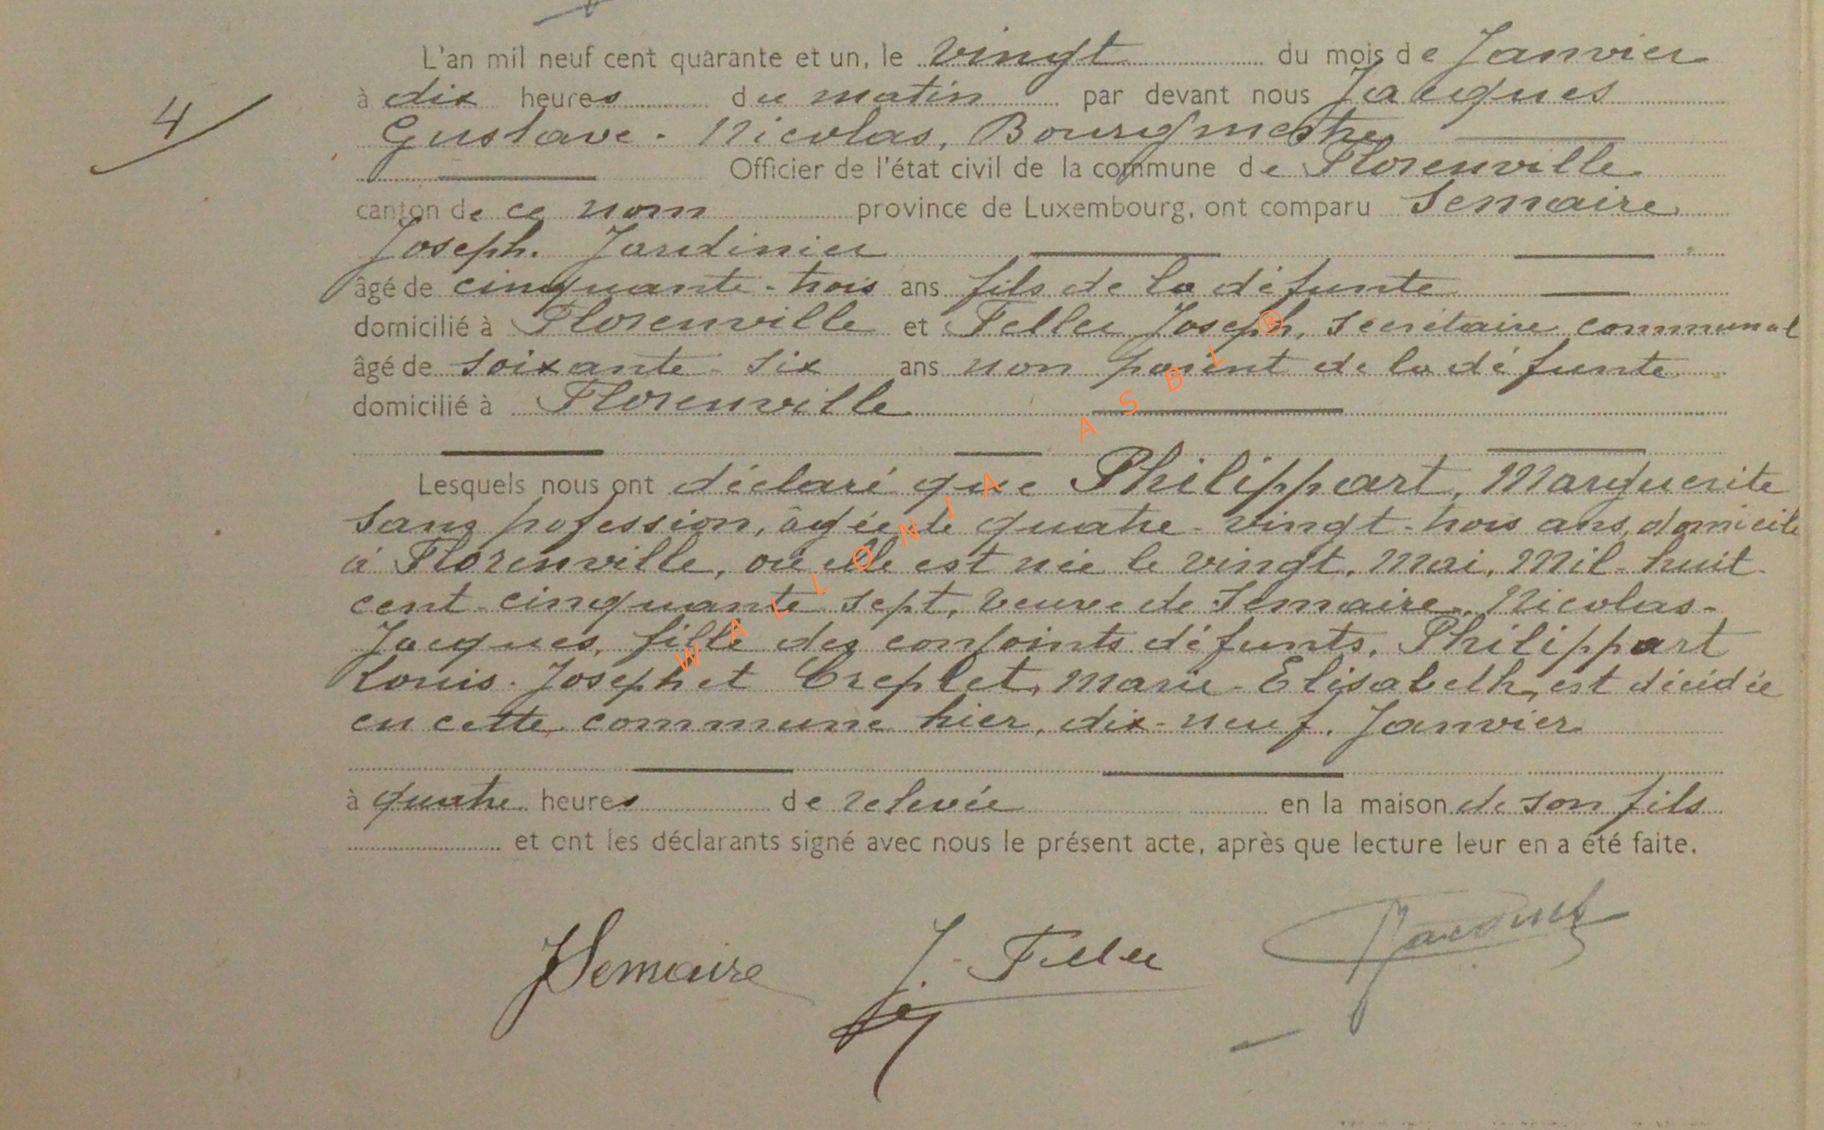 4
L'an mil neuf cent quarante et un, le vingt du mois de Janvier
à dix heures du matin par devant nous Jacques
Gustave - Nicolas, Bourgmestre
Officier de l'état civil de la commune de Florenville
canton de ce nom province de Luxembourg, ont comparu Semaire
Joseph. Jardinier
âgé de cinquante-trois ans fils de la défunte
domicilié à Florenville et Feller Joseph, secrétaire communal
âgé de soixante-six ans non parent de la défunte
domicilié à Florenville
Lesquels nous ont déclaré que Philippart, Marguerite
sans profession, âgée de quatre-vingt-trois ans, domicile
à Florenville, où elle est née le vingt, Mai, Mil-huit-
cent-cinquante sept, veuve de Semaire, Nicolas-
Jacques, fille des conjoints défunts, Philippart
Louis-Joseph et Creplet, Marie-Elisabeth, est décédée
en cette commune hier, dix-neuf, Janvier
à quatre heures de relevée en la maison de son fils
et ont les déclarants signé avec nous le présent acte, après que lecture leur en a été faite.
JSemaire J. Feller Jacques
WALLONIA ASBL ®